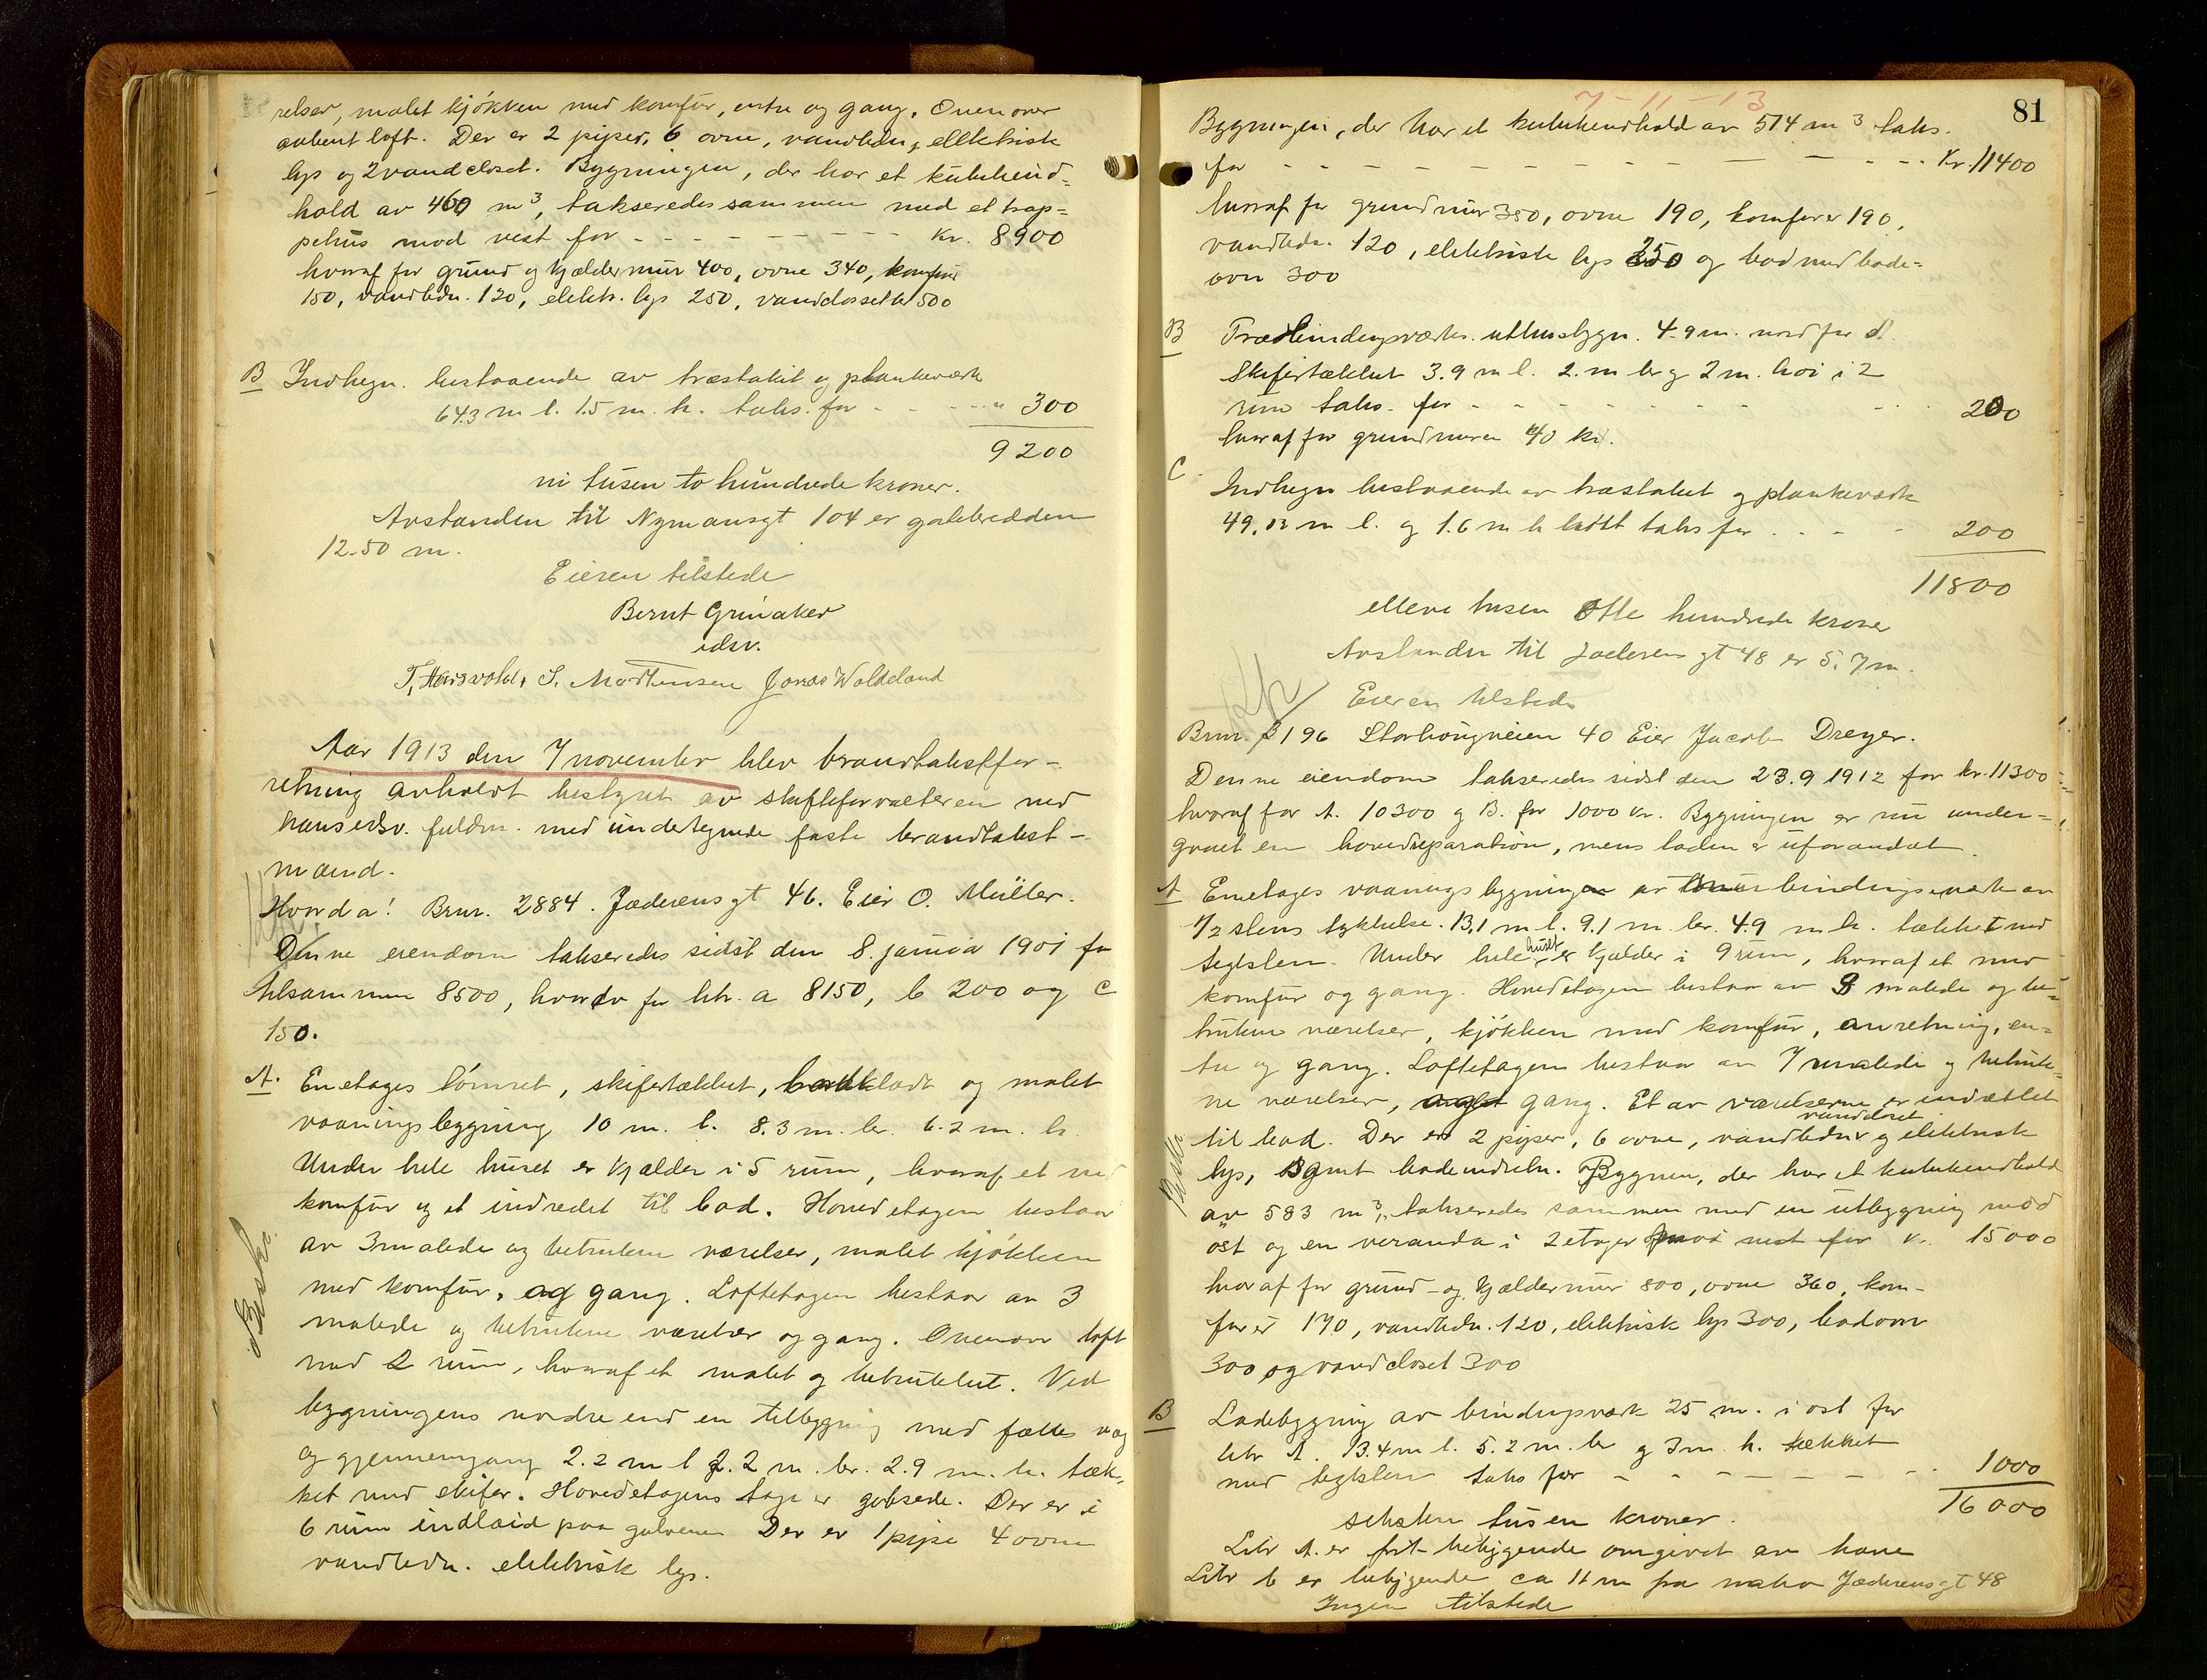 relser, malet kjökken med komfür, entre og gang. Ovenover
aabent loft. Der er 2 piper, 6 ovne, vandledn, ellektrisk
lys og 2 vandcloset. Bygningen, der har et kubikind=
hold av 460 m³, takseredes sammen med et trap=
pehus mod vest for - - - - - - - - - kr. 8900
hvoraf for grund og kjældermur 400, ovne 340, komfur
150, vandledn. 120, elektr. lys 250, vandclossetter 500
B Indhegn. bestaaende av træstakit og plankeværk
64.3 m l. 1.5 m. h. taks. for - - - - " 300
9200
ni tusen to hundrede kroner.
Avstanden til Nymansgt 104 er gatebredden
12.50 m.
Eieren tilstede
Bernt Grinaker
edsv.
T. Hausvold, S. Mortensen Jonas Woldeland
Aar 1913 den 7 november blev brandtakstfor-
retning avholdt bestyret av skifteforvalteren ved
hans edsv. fuldm. med undertegnede faste brandtakst-
mænd.
Hvorda! Brnr. 2884. Jæderensgt 46. Eier O. Müller.
Denne eiendom takseredes sidst den 8. januar 1901 for
tilsammen 8500, hvorav for litr. a 8150, b 200 og c
150.
A. Enetages tömret, skifertækket, bordklædt og malet
vaaningsbygning 10 m. l. 8.3 m. br. 6.2 m. h.
Under hele huset er kjælder i 5 rum, hvoraf et med
komfur og et indredet til bad. Hovedetagen bestaar
av 3 malede og betrukne værelser, malet kjökken
med komfür, og gang. Loftetagen bestaar av 3
malede og betrukne værelser og gang. Ovenover loft
med 2 rum, hvoraf et malet og betrukket. Ved
Besk.
bygningens nordre end en tilbygning med fælles væg
og gjennemgang 2.2 m l 2.2 m. br. 2.9 m. h. tæk-
ket med skifer. Hovedetagens tage er gibsede. Der er i
6 rum indlaid paa gulvene Der er 1 pipe 4 ovne
vandledn. elektrisk lys.
7-11-13
81
Bygningen, der har et kubikendhold av 514 m³ taks.
for - - - - - - - - - - - - - Kr. 11400
hvoraf for grundmur 380, ovne 190, komfurer 190,
vandledn. 120, elektriske lys 250 og bad med bade=
ovn 300
B Træbindingsværks. uthusbygn. 4.9 m. nord for A.
Skifertækket 3.9 m l. 2. m br og 2 m. höi i 2
rum taks. for - - - - - - - - - 200
hvoraf for grundmuren 40 kr.
C Indhegn bestaaende av træstakit og plankeværk
49.02 m l. og 1.6 m h höit taks for . . - - 200
11800
elleve tusen otte hundrede kroner
Avstanden til Jæderensgt 48 er 5.7 m.
Eieren tilstede
Brnr. 3196 Storhougveien 40 Eier Jacob Dreyer.
Denne eiendom takseredes sidst den 23.9 1912 for kr. 11300
hvoraf for A. 10300 og B. for 1000 kr. Bygningen er nu under=
graet en hovedreparation, mens laden er uforandret.
A Enetages vaaningsbygningen av bindingsværk av
1/2 stens tykkelse. 13,1 m l. 9.1 m br. 4.9 m h. tækket med
teglsten. Under hele huset er kjælder i 9 rum, hvoraf et med
komfur og gang. Hovedetagen bestaar av 8 malede og be=
trukne værelser, kjökken med komfur, anretning, en=
tre og gang. Loftetagen bestaar av 7 malede og betruk=
ne værelser, gang. Et av værelserne er indrettet
til bad. Der er 2 piper, 6 ovne, vandledn, vandcloset og elektrisk
lys, samt badeindretn. Bygnen, der har et kubikendhold
Besk.
av 583 m³, takseredes sammen med en utbygning mod
öst og en veranda i 2 etager mod vest for kr. 15000
hvoraf for grund- og kjældermur 800, ovne 360, kom-
furer 190, vandledn. 120, elektrisk lys 300, badeovn
300 og vandcloset 300
B Ladebygning av bindingsværk 25 m. i ost for
litr A. 13.4 m l. 5.2 m. br og 3 m. h. tækket
med teglsten taks for - - - - - - - - 1000
16000
seksten tusen kroner.
Litr A. er frit beliggende omgivet av have
Litr b er beliggende ca 11 m fra nabo Jæderensgt 48
Ingen tilstede